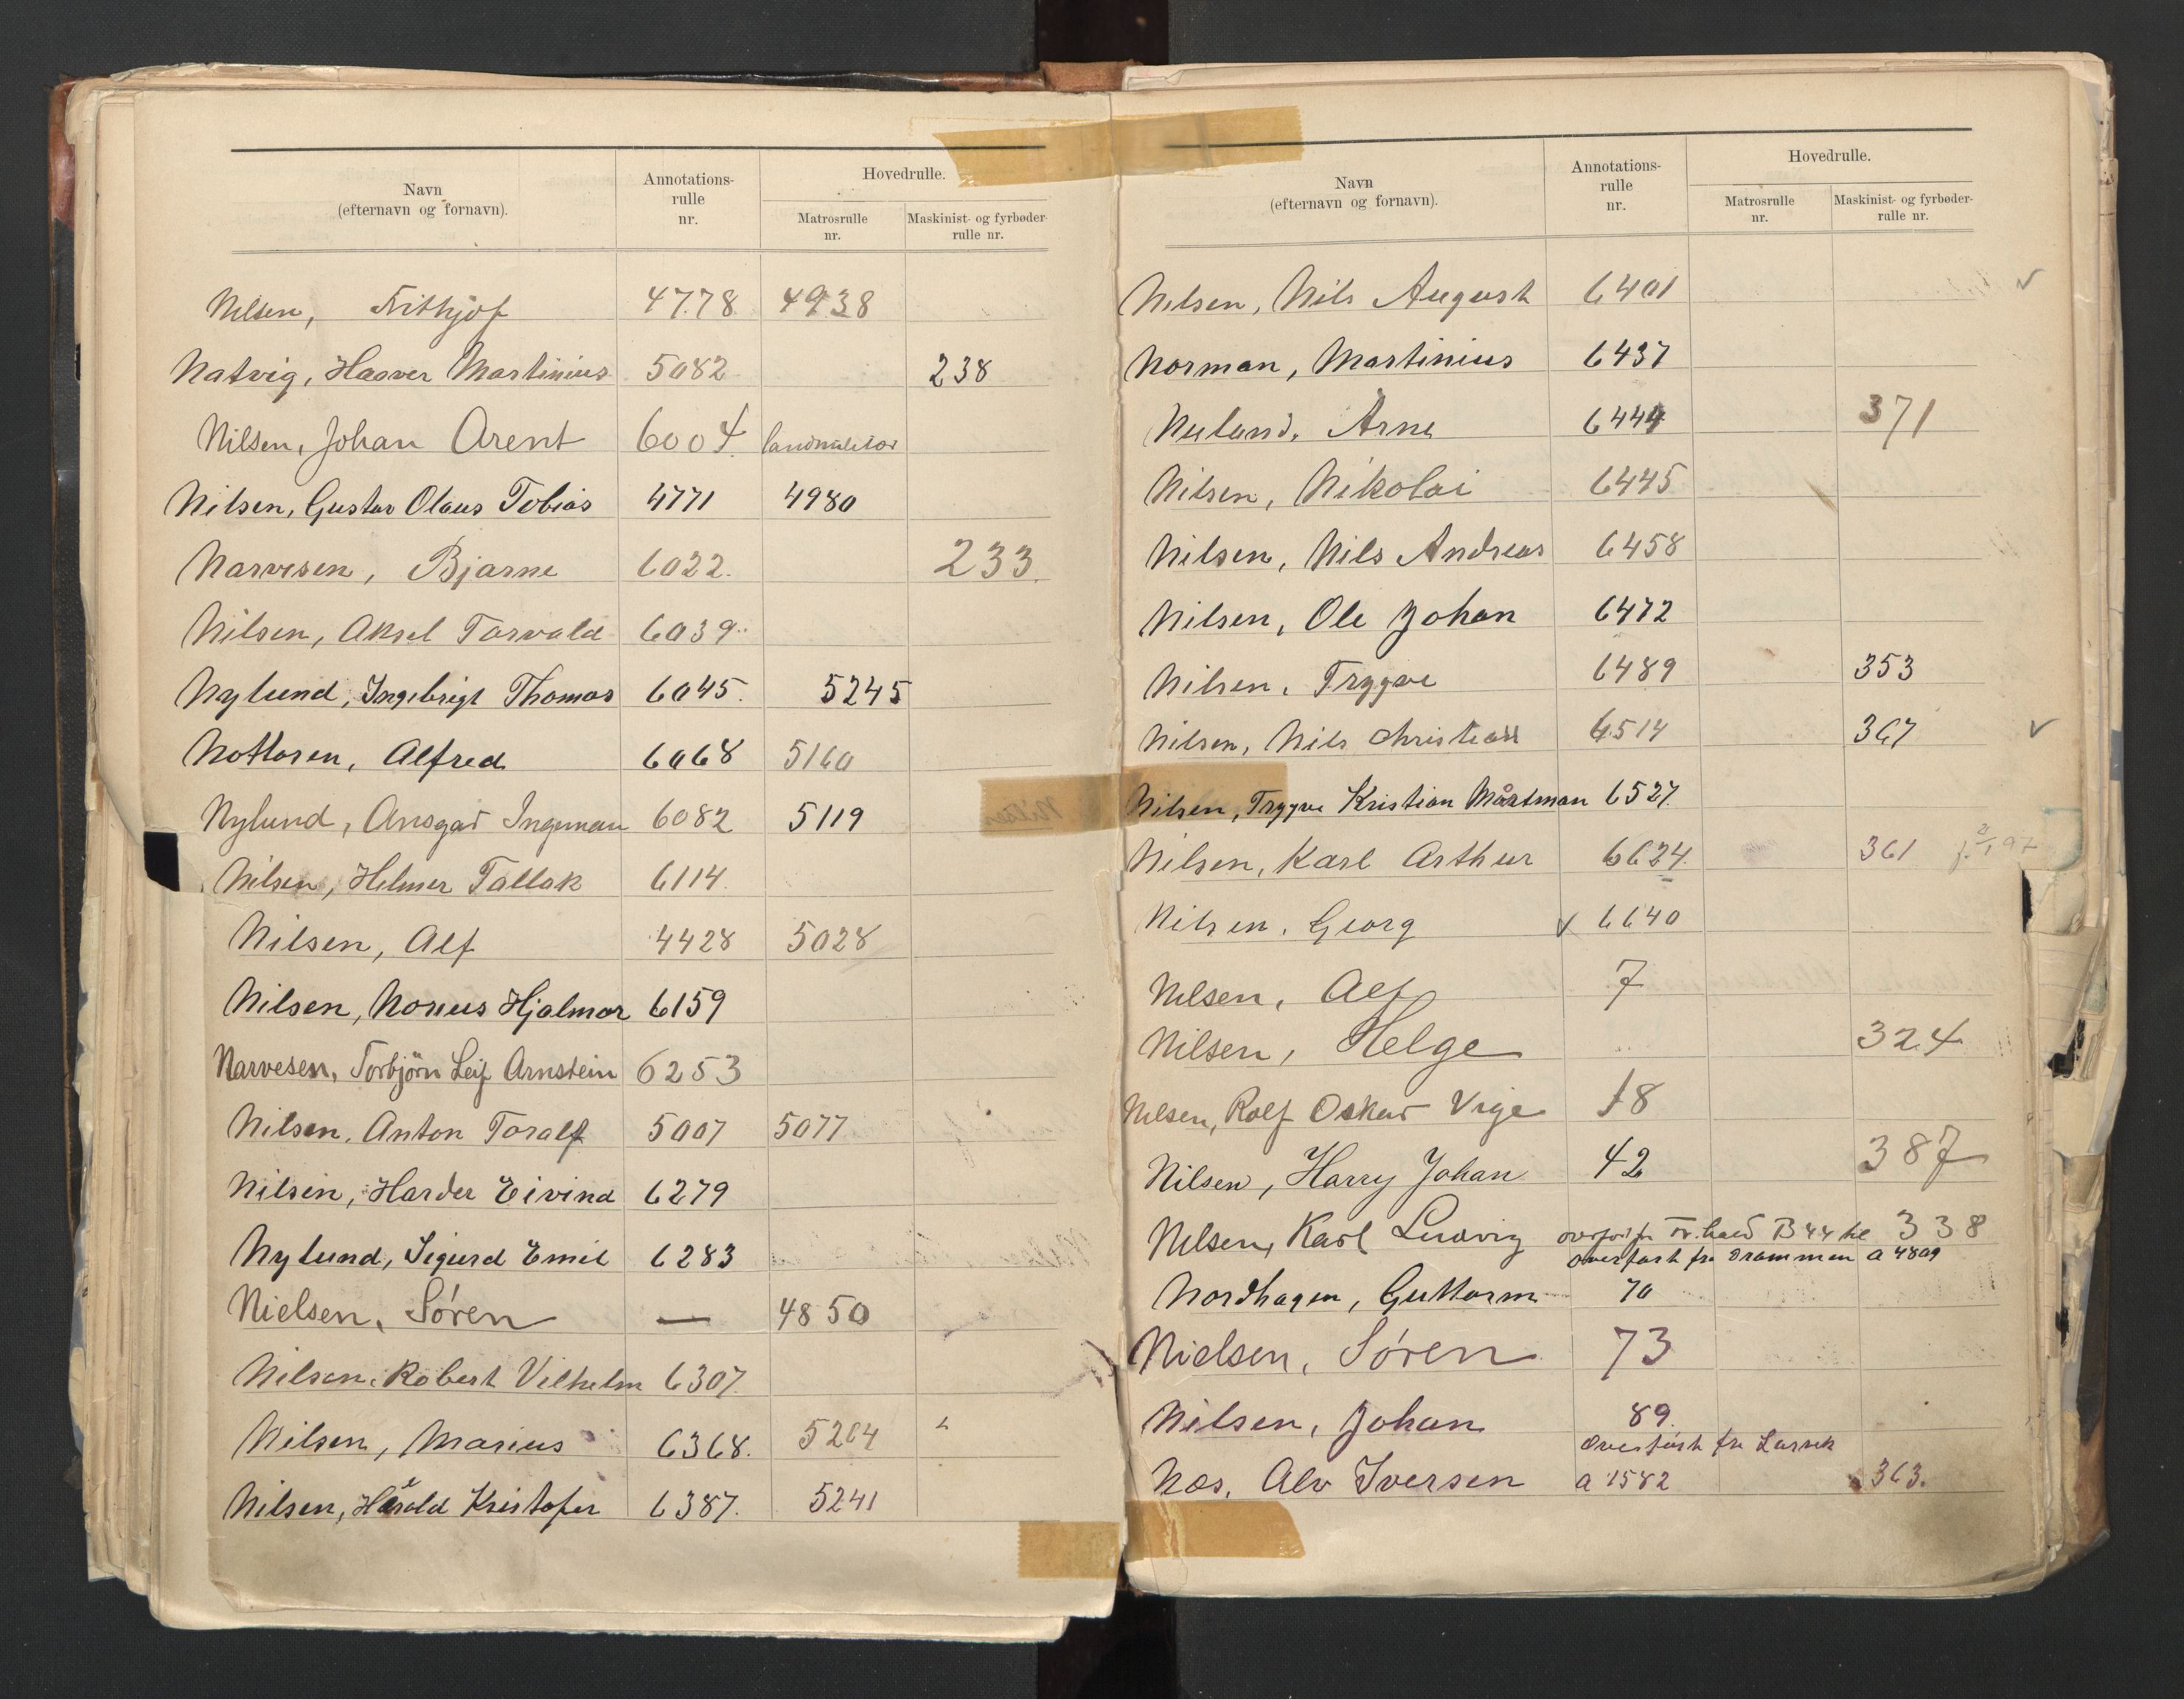 Navn (efternavn og fornavn). Annotations-rulle nr. Hovedrulle.
Matrosrulle nr. Maskinist- og fyrbøder-rulle nr.
Nilsen, Frithjof 4778 4938
Natvig, Haaver Martinius 5082 238
Nilsen, Johan Arent 6004
Nilsen, Gustav Olaus Tobias 4771 4980
Narvesen, Bjarne 6022. 233.
Nilsen, Aksel Torvald 6039.
Nylund, Ingebrigt Thomas 6045. 5245
Nottosen, Alfred 6068 5160
Nylund, Ansgar Ingeman 6082 5119
Nilsen, Helmer Tallak 6114.
Nilsen, Alf 4428 5028
Nilsen, Nonus Hjalmar 6159
Narvesen, Torbjörn Leif Arnstein 6253
Nilsen, Anton Toralf 5007 5077
Nilsen, Harder Eivind 6279
Nylund, Sigurd Emil 6283
Nielsen, Sören — 4850
Nilsen, Robert Vilhelm 6307.
Nilsen, Marius 6368. 5264
Nilsen, Harald Kristofer 6387. 5241
Navn (efternavn og fornavn). Annotations-rulle nr. Hovedrulle.
Matrosrulle nr. Maskinist- og fyrbøder-rulle nr.
Nilsen, Nils August 6401 ✓
Norman, Martinius 6437
Nuland, Arne 6444 371
Nilsen, Nikolai 6445
Nilsen, Nils Andreas 6458
Nilsen, Ole Johan 6472
Nilsen, Trygve 6489 353
Nilsen, Nils Christian 6514 367 ✓
Nilsen, Trygve Kristian Mårtman 6527.
Nilsen, Karl Arthur 6624. 361
Nilsen, Georg ✓ 6640
Nilsen, Alf 7
Nilsen, Helge 324
Nilsen, Rolf Oskar Vige 18
Nilsen, Harry Johan 42 387
Nilsen, Karl Ludvig overført fr Fr.hald B 44 338
overført fra Drammen a 4809
Nordhagen, Guttorm 70
Nielsen, Sören 73
Nilsen, Johan 89.
overført fra Larvik
Næs, Alv Iversen a 1582 363.